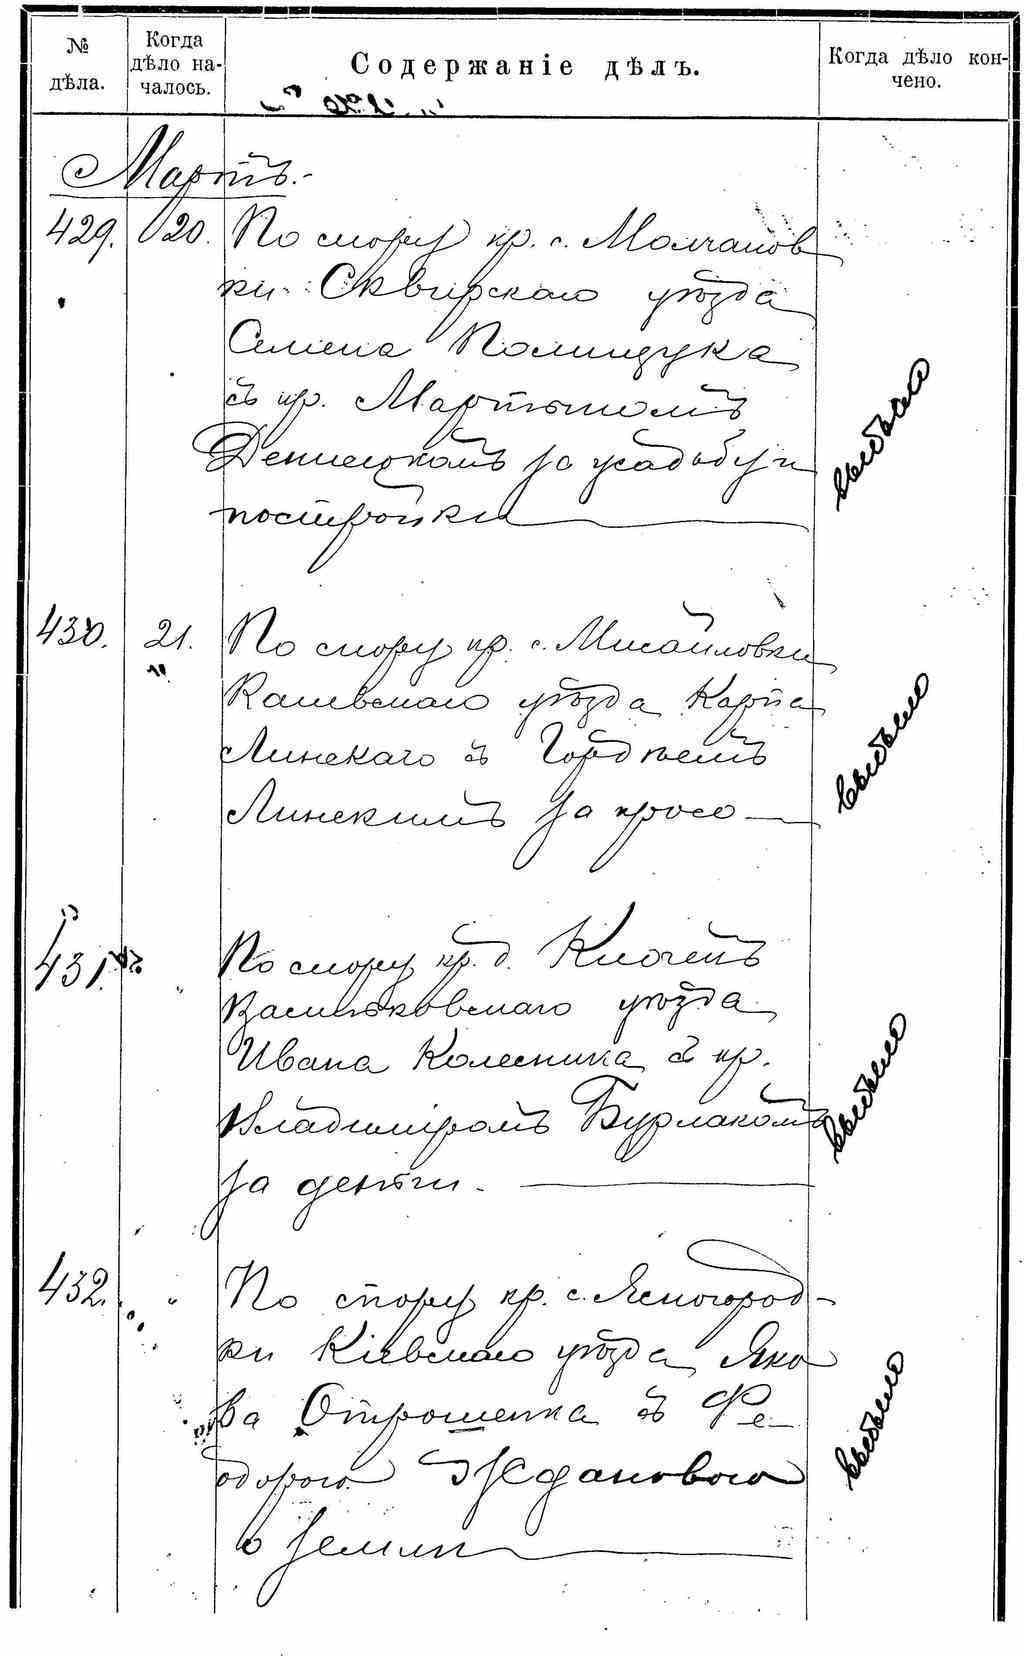 № дѣла.
Когда дѣло на-
чалось.
Содержаніе дѣлъ.
Когда дѣло кон-
чено.
Мартъ.
429. 20. По спору кр. с. Молчанов
ки Сквирскаго уѣзда
Семена Полищука
съ кр. Мартыномъ
Денисюкомъ за усадьбу и
постройки
выбыло
430. 21. По спору кр. с. Мисайловки
Каневскаго уѣзда Карпа
Линскаго съ Гордѣемъ
Линскимъ за просо
выбыло
431. " По спору кр. д. Ключекъ
Васильковскаго уѣзда
Ивана Колесника съ кр.
Владиміромъ Бурлакомъ
за деньги.
выбыло
432. " По спору кр. с. Ясногород-
ки Кіевскаго уѣзда Яко
ва Отрошенка съ Фе-
дорою Ждановою
о землѣ
выбыло